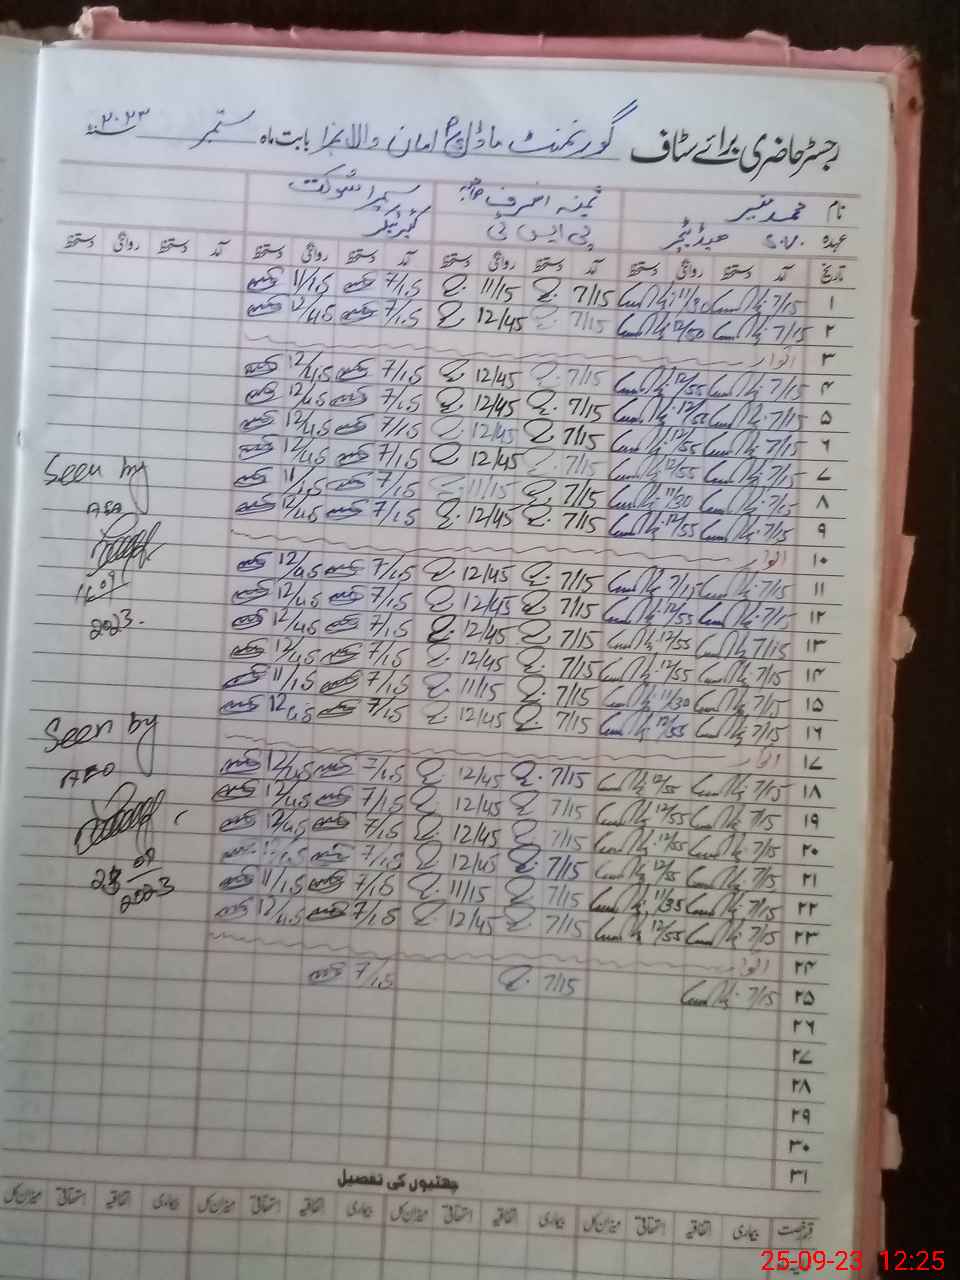 رجسٹر حاضری برائے سٹاف گورنمنٹ ماڈل امان والا بابت ماہ ستمبر سنہ ۲۰۲۳
نام محمد منیر ثمینہ اشرف سمیرا شوکت
عہدہ ہیڈ ٹیچر پی ایس ٹی
تاریخ آمد دستخط روانگی دستخط آمد دستخط روانگی دستخط آمد دستخط روانگی دستخط آمد دستخط روانگی دستخط
۱ 7/15 11/30 7/15 11/15 7/15 11/15
۲ 7/15 12/50 7/15 12/45 7/15 12/45
۳ اتوار
۴ 7/15 12/55 7/15 12/45 7/15 12/45
۵ 7/15 12/55 7/15 12/45 7/15 12/45
۶ 7/15 12/55 7/15 12/45 7/15 12/45
۷ 7/15 12/55 7/15 12/45 7/15 12/45
۸ 7/15 11/30 7/15 11/15 7/15 11/15
۹ 7/15 12/55 7/15 12/45 7/15 12/45
۱۰ اتوار
۱۱ 7/15 7/15 12/45 7/15 12/45
۱۲ 7/15 12/55 7/15 12/45 7/15 12/45
۱۳ 7/15 12/55 7/15 12/45 7/15 12/45
۱۴ 7/15 12/55 7/15 12/45 7/15 12/45
۱۵ 7/15 11/30 7/15 11/15 7/15 11/15
۱۶ 7/15 12/55 7/15 12/45 7/15 12/45
۱۷ اتوار
۱۸ 7/15 12/55 7/15 12/45 7/15 12/45
۱۹ 7/15 12/55 7/15 12/45 7/15 12/45
۲۰ 7/15 12/55 7/15 12/45 7/15 12/45
۲۱ 7/15 12/55 7/15 12/45 7/15
۲۲ 7/15 11/35 7/15 11/15 7/15 11/15
۲۳ 7/15 12/55 7/15 12/45 7/15 12/45
۲۴ اتوار
۲۵ 7/15 7/15 7/15
۲۶
۲۷
۲۸
۲۹
۳۰
۳۱
Seen by
AEO
2023
Seen by
AEO
09
2023
چھٹیوں کی تفصیل
قسم رخصت بیماری اتفاقیہ استحقاقی میزان کل بیماری اتفاقیہ استحقاقی میزان کل بیماری اتفاقیہ استحقاقی میزان کل بیماری اتفاقیہ استحقاقی میزان کل
25-09-23 12:25